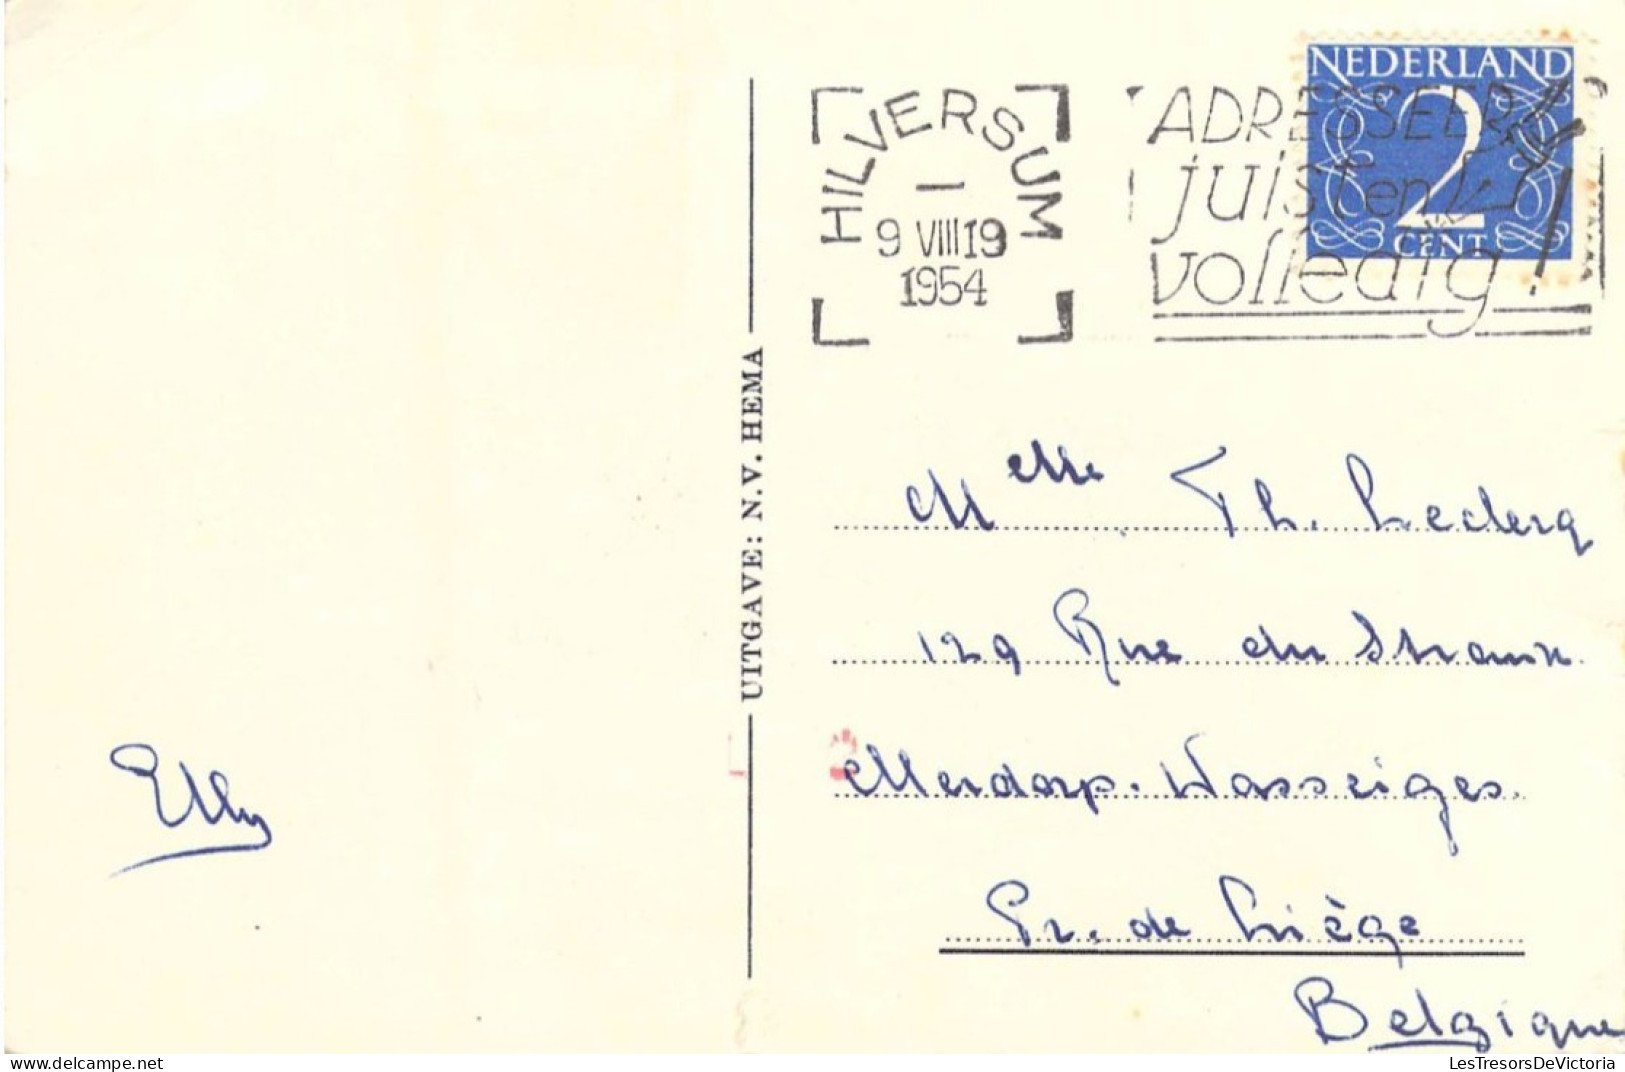 NEDERLAND
2
CENT
HILVERSUM
9 VIII 19
1954
ADRESSEER
juist en
volledig!
UITGAVE: N.V. HEMA
Melle Th. Leclerq
129 Rue du
Merdorp. Wasseiges.
Pr. de Liège
Belgique
Elly
LesTresorsDeVictoria